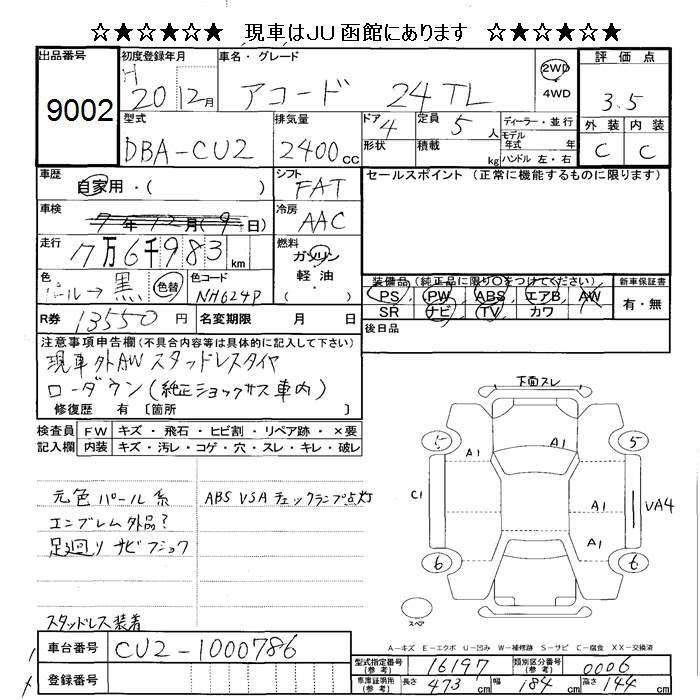 ☆★☆★☆★ 現車はJU函館にあります ☆★☆★☆★
出品番号 初度登録年月 車名・グレード 評価点
9002 H 20 12月 アコード 24TL 2WD 4WD 3.5
型式 排気量 ドア 定員 ディーラー・並行 外装 内装
DBA-CU2 2400cc 4 5人 モデル年式 年 C C
形状 積載 kg ハンドル 左・右
車歴 自家用・( ) シフト FAT セールスポイント (正常に機能するものに限ります)
車検 7年12月(9日) 冷房 AAC
走行 7万6千983km 燃料 ガソリン
軽油
( )
色 パール→黒 色替 色コード NH624P
装備品 (純正品に限り○をつけてください) 新車保証書
PS PW ABS エアB AW 有・無
SR ナビ TV カワ
R券 13550円 名変期限 月 日 後日品
注意事項申告欄(不具合内容等は具体的に記入して下さい)
現車外AW スタッドレスタイヤ
ローダウン(純正ショックサス車内)
修復歴 有 〔箇所 〕
検査員 FW キズ・飛石・ヒビ割・リペア跡・×要
記入欄 内装 キズ・汚レ・コゲ・穴・スレ・キレ・破レ
下面スレ
5 A1 A1 5
C1 A1 VA4
A1
6 6
スペア
元色パール系 ABS VSA チェックランプ点灯
エンブレム外品?
足廻りサビフショク
スタッドレス装着
A-キズ E-エクボ U-凹み W-補修跡 S-サビ C-腐食 XX-交換済
車台番号 CU2-1000786
登録番号
型式指定番号(参考) 16197 類別区分番号(参考) 0006
車庫証明用(参考) 長さ 473cm 幅 184cm 高さ 144cm